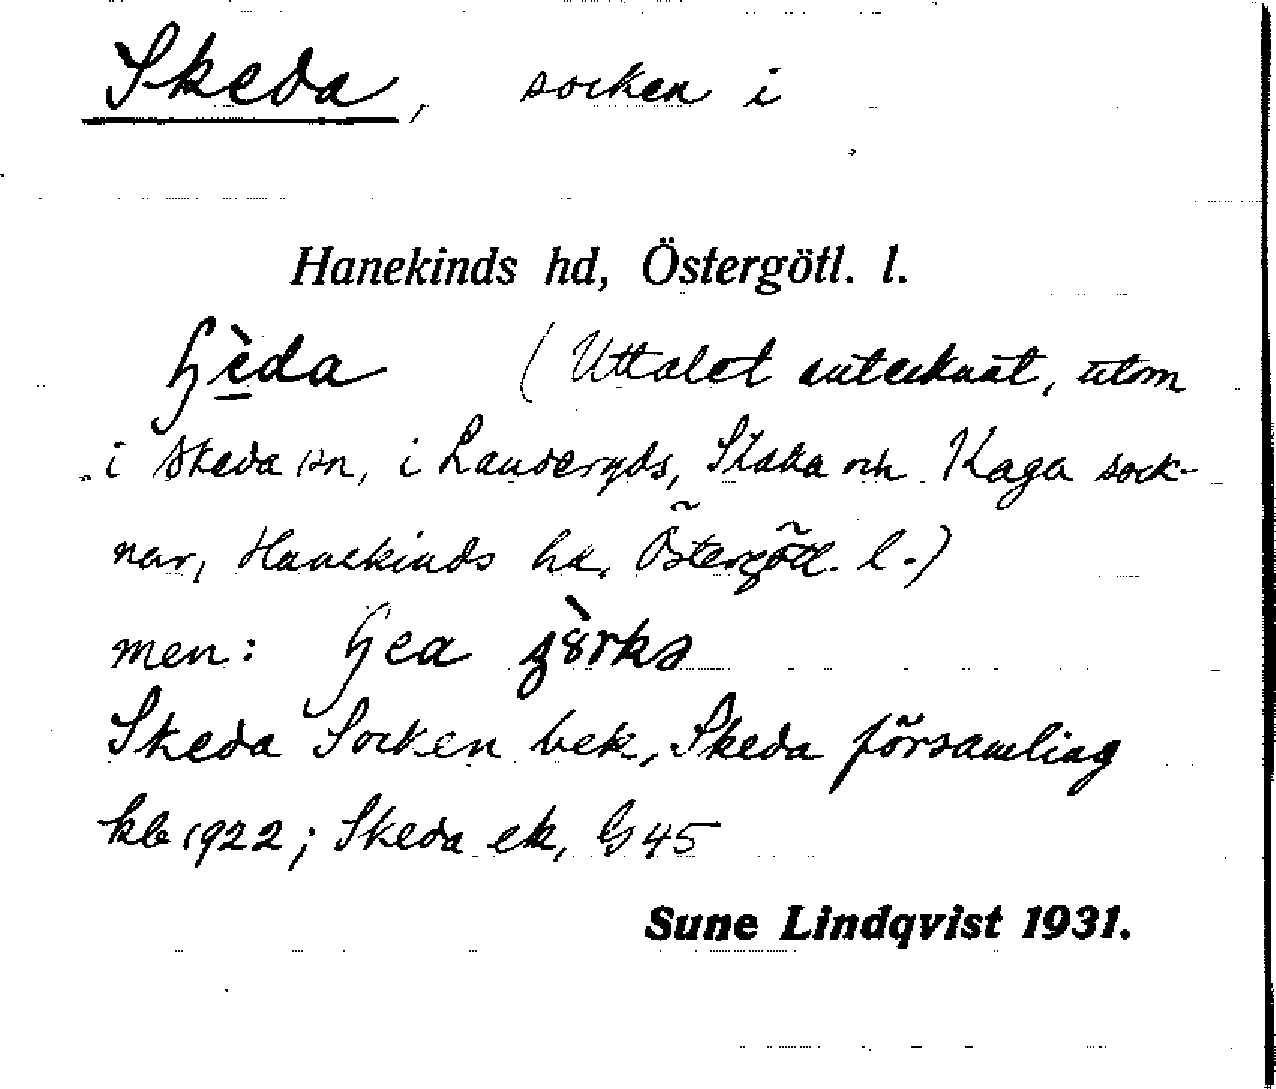 Skeda, socken i
Hanekinds hd, Östergötl. l.
ɧèda (Uttalet antecknat, utom
i Skeda sn, i Landeryds, Slaka och Kaga sock-
nar, Hanekinds hd, Östergötl. l.)
men: ɧea
Skeda Socken bek, Skeda församling
kb 1922; Skeda ek, G 45
Sune Lindqvist 1931.